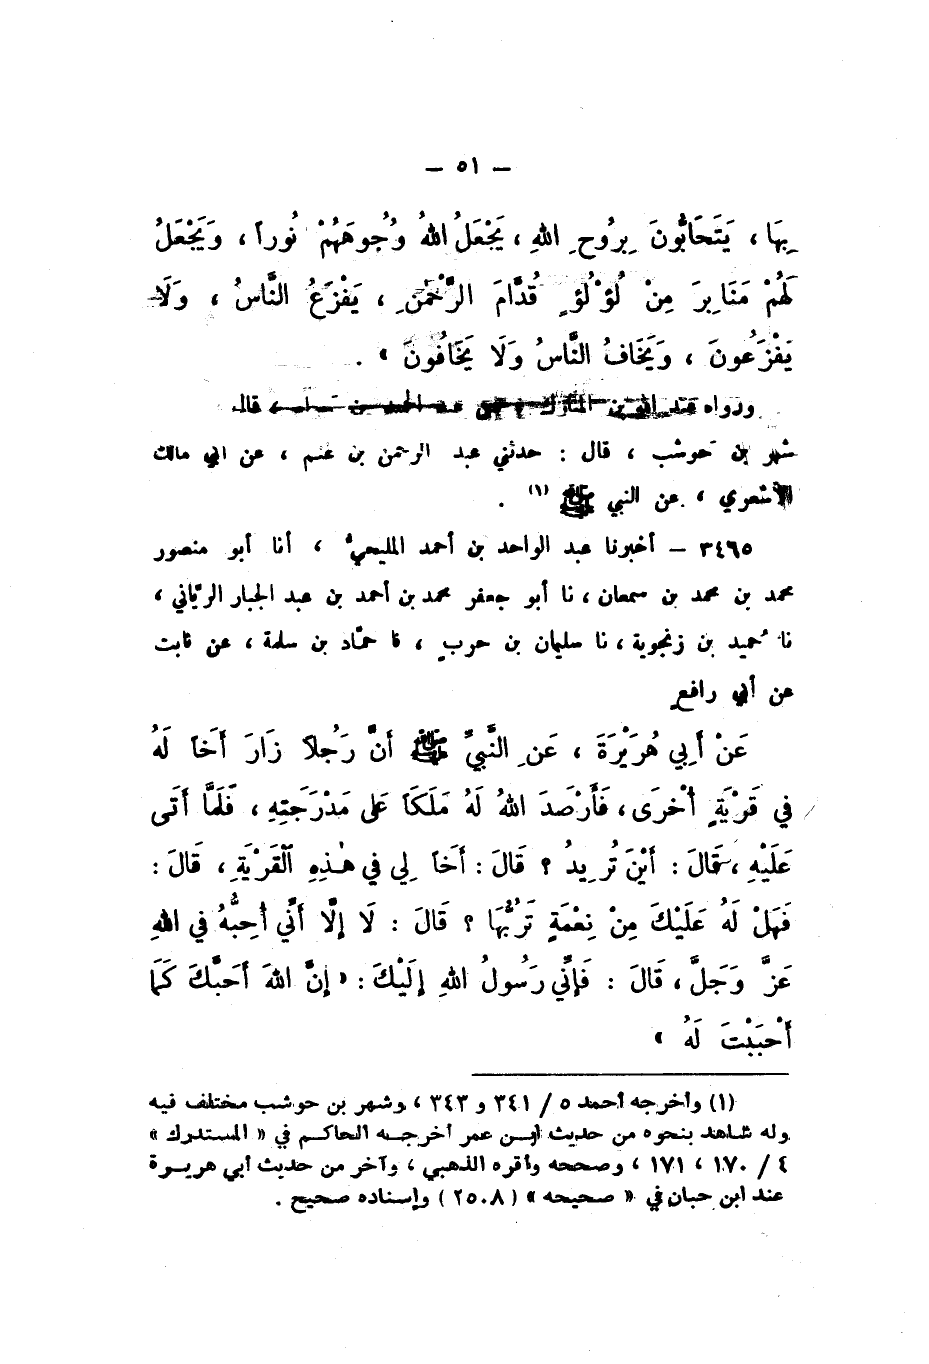 — ٥١ —
بِهَا ، يَتَحَابُّونَ بِرُوحِ اللهِ ، يَجْعَلُ اللهُ وُجُوهَهُمْ نُوراً ، وَيَجْعَلُ
لَهُمْ مَنَابِرَ مِنْ لُؤْلُؤٍ قُدَّامَ الرَّحْمٰنِ ، يَفْزَعُ النَّاسُ ، وَلَا
يَفْزَعُونَ ، وَيَخَافُ النَّاسُ وَلَا يَخَافُونَ » .
ورواه بن قال
شهر بن حوشب ، قال : حدثني عبد الرحمن بن غنم ، عن أبي مالك
الأشعري ، عن النبي ﷺ (١) .
٣٤٦٥ – أخبرنا عبد الواحد بن أحمد المليحيُّ ، أنا أبو منصور
محمد بن محمد بن سمعان ، نا أبو جعفر محمد بن أحمد بن عبد الجبار الريّاني ،
نا حُميد بن زنجوية ، نا سليمان بن حربٍ ، نا حمّاد بن سلمة ، عن ثابت
عن أبي رافعٍ
عَنْ أَبِي هُرَيْرَةَ ، عَنِ النَّبِيِّ ﷺ أَنَّ رَجُلاً زَارَ أَخاً لَهُ
فِي قَرْيَةٍ أُخْرَى ، فَأَرْصَدَ اللهُ لَهُ مَلَكاً عَلَى مَدْرَجَتِهِ ، فَلَمَّا أَتَى
عَلَيْهِ ، قَالَ : أَيْنَ تُرِيدُ ؟ قَالَ : أَخاً لِي فِي هٰذِهِ الْقَرْيَةِ ، قَالَ :
فَهَلْ لَهُ عَلَيْكَ مِنْ نِعْمَةٍ تَرُبُّهَا ؟ قَالَ : لَا إِلَّا أَنِّي أُحِبُّهُ فِي اللهِ
عَزَّ وَجَلَّ ، قَالَ : فَإِنِّي رَسُولُ اللهِ إِلَيْكَ : « إِنَّ اللهَ أَحَبَّكَ كَمَا
أَحْبَبْتَ لَهُ »
(١) وأخرجه أحمد ٥ / ٣٤١ و ٣٤٣ ، وشهر بن حوشب مختلف فيه
وله شاهد بنحوه من حديث ابن عمر أخرجه الحاكم في « المستدرك »
٤ / ١٧٠ ، ١٧١ ، وصححه وأقره الذهبي ، وآخر من حديث أبي هريرة
عند ابن حبان في « صحيحه » ( ٢٥٠٨ ) وإسناده صحيح .